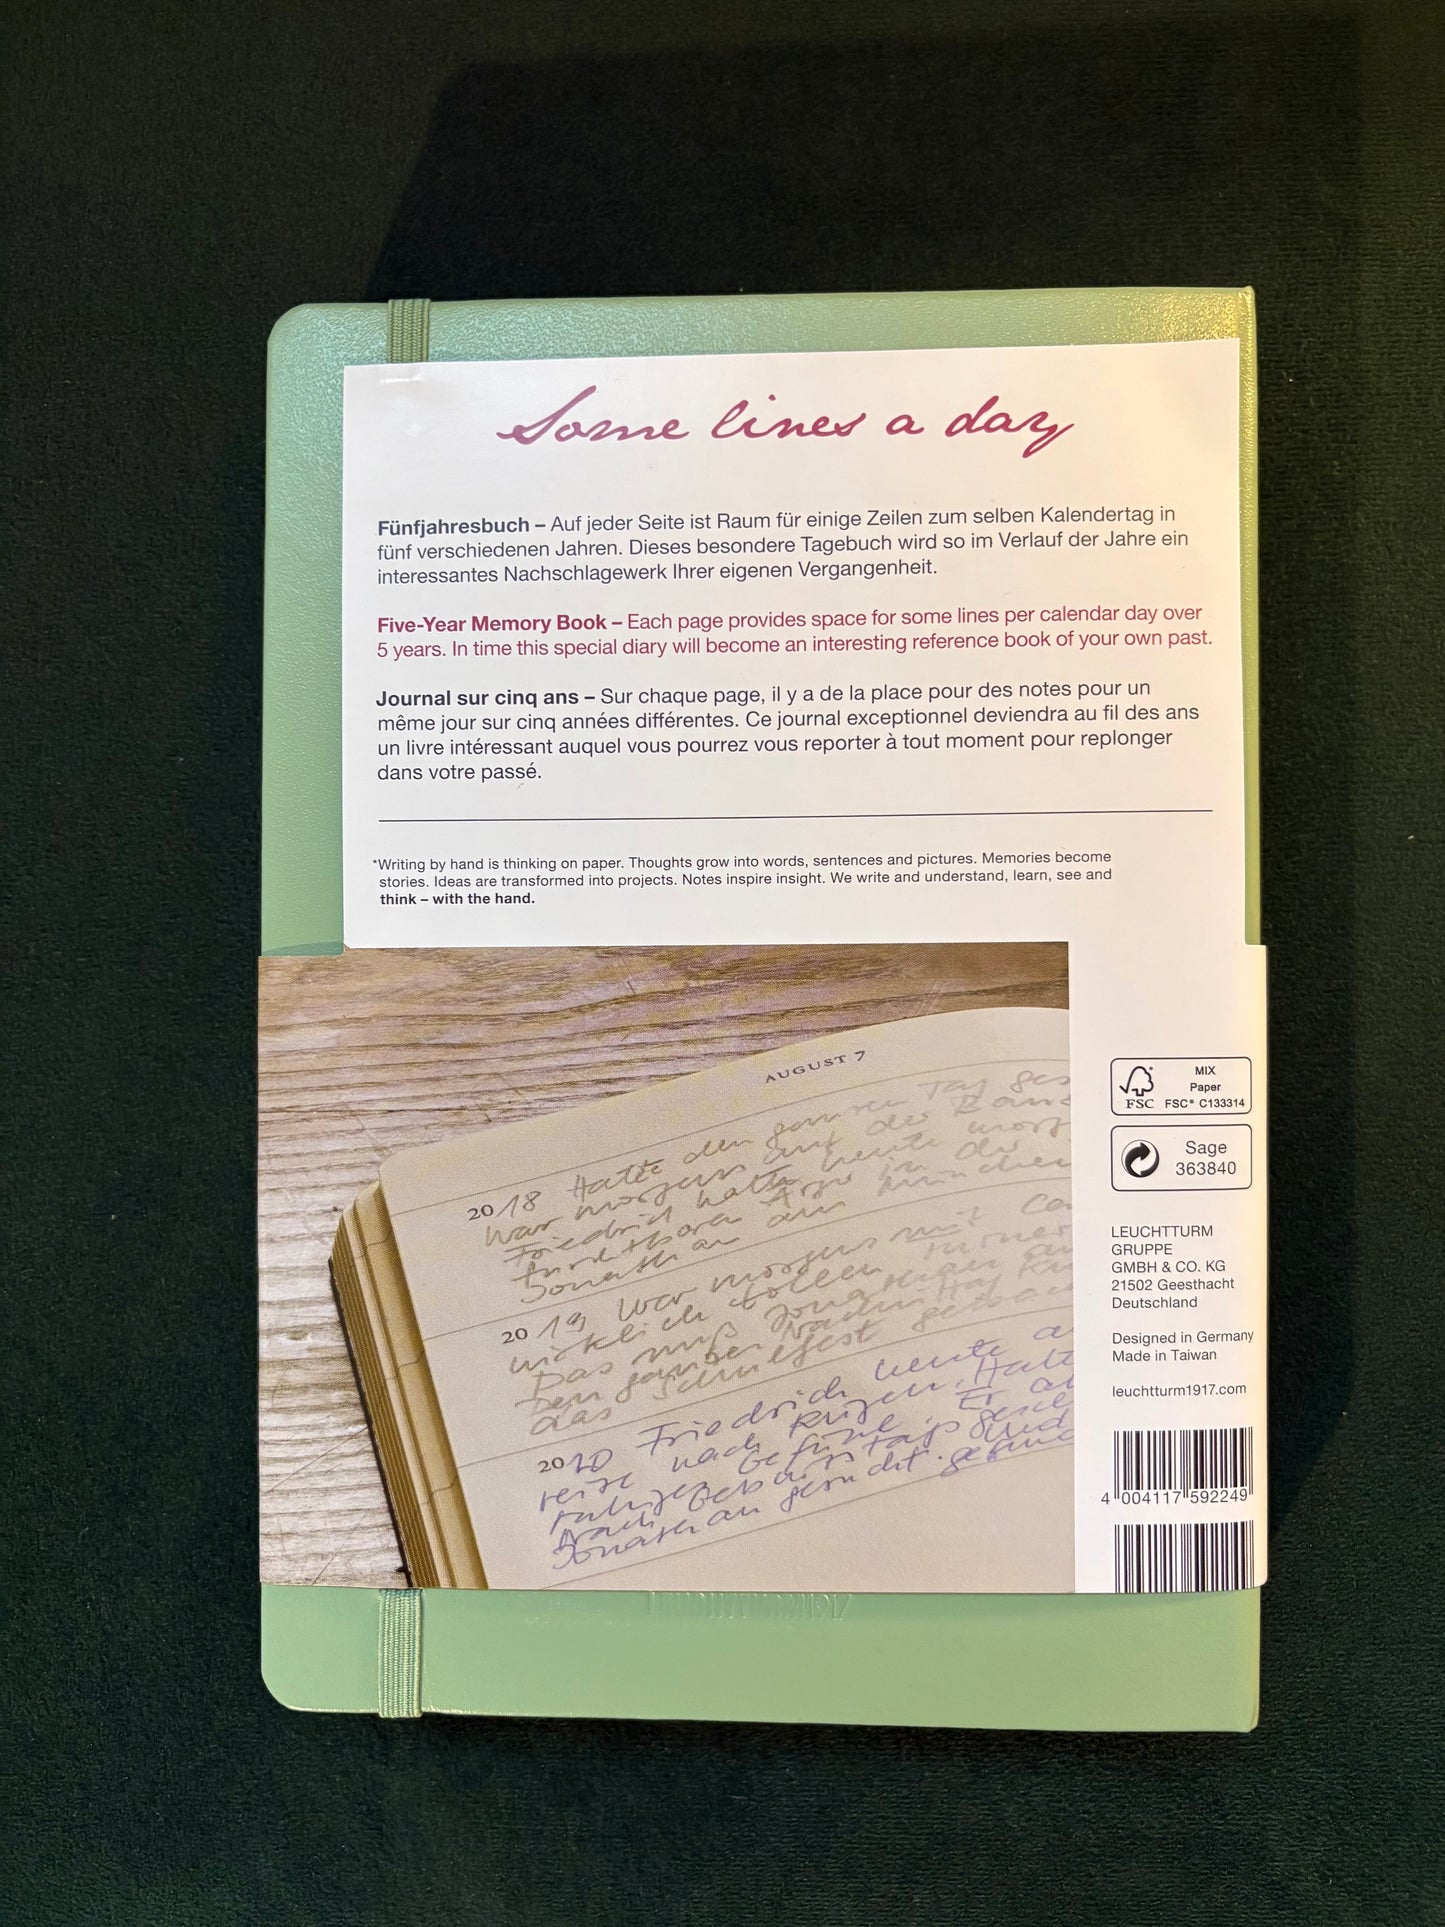 Some lines a day
Fünfjahresbuch – Auf jeder Seite ist Raum für einige Zeilen zum selben Kalendertag in
fünf verschiedenen Jahren. Dieses besondere Tagebuch wird so im Verlauf der Jahre ein
interessantes Nachschlagewerk Ihrer eigenen Vergangenheit.
Five-Year Memory Book – Each page provides space for some lines per calendar day over
5 years. In time this special diary will become an interesting reference book of your own past.
Journal sur cinq ans – Sur chaque page, il y a de la place pour des notes pour un
même jour sur cinq années différentes. Ce journal exceptionnel deviendra au fil des ans
un livre intéressant auquel vous pourrez vous reporter à tout moment pour replonger
dans votre passé.
*Writing by hand is thinking on paper. Thoughts grow into words, sentences and pictures. Memories become
stories. Ideas are transformed into projects. Notes inspire insight. We write and understand, learn, see and
think – with the hand.
AUGUST 7
2018 Hatte den ganzen Tag
war morgens auf der
Friedrich hatte heute
Jonathan am
2019 War morgens mit
wirklich tollen
Das muß Jonathan
Den ganzen Nachmittag
das Schulfest
2020 Friedrich heute
reise nach Rügen. Hatt
Jonathan
MIX
Paper
FSC FSC® C133314
Sage
363840
LEUCHTTURM
GRUPPE
GMBH & CO. KG
21502 Geesthacht
Deutschland
Designed in Germany
Made in Taiwan
leuchtturm1917.com
4 004117 592249